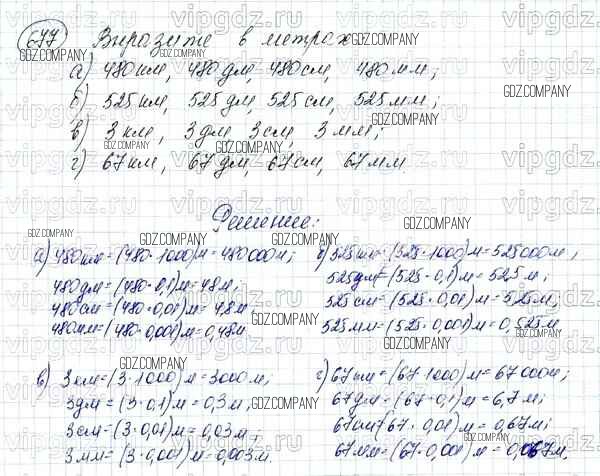 677 Выразите в метрах
GDZ.COMPANY GDZ.COMPANY
а) 480 км, 480 дм, 480 см, 480 мм;
GDZ.COMPANY
б) 525 км, 525 дм, 525 см, 525 мм;
GDZ.COMPANY
в) 3 км, 3 дм, 3 см, 3 мм;
GDZ.COMPANY GDZ.COMPANY
г) 67 км, 67 дм, 67 см, 67 мм.
Решение:
GDZ.COMPANY GDZ.COMPANY GDZ.COMPANY
а) 480 км = (480·1000) м = 480000 м;
480 дм = (480·0,1) м = 48 м;
480 см = (480·0,01) м = 4,8 м
480 мм = (480·0,001) м = 0,48 м
б) 525 км = (525·1000) м = 525000 м,
525 дм = (525·0,1) м = 52,5 м;
525 см = (525·0,01) м = 5,25 м,
525 мм = (525·0,001) м = 0,525 м
GDZ.COMPANY GDZ.COMPANY
GDZ.COMPANY
в) 3 км = (3·1000) м = 3000 м;
3 дм = (3·0,1) м = 0,3 м,
3 см = (3·0,01) м = 0,03 м;
3 мм = (3·0,001) м = 0,003 м.
г) 67 км = (67·1000) м = 67000 м;
67 дм = (67·0,1) м = 6,7 м;
67 см = (67·0,01) м = 0,67 м;
67 мм = (67·0,001) м = 0,067 м.
GDZ.COMPANY GDZ.COMPANY
GDZ.COMPANY GDZ.COMPANY
vipgdz.ru